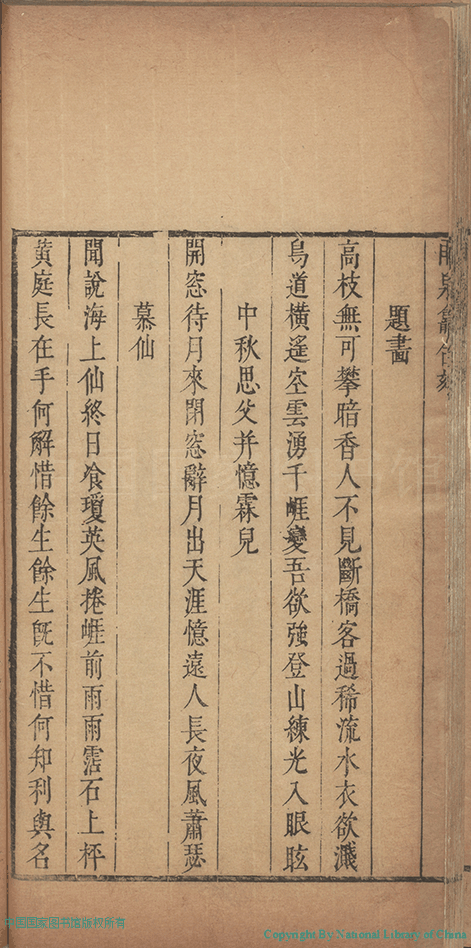 題畫
高枝無可攀暗香人不見斷橋客過稀流水衣欲濺
鳥道橫遙空雲湧千崕變吾欲強登山練光入眼眩
中秋思父并憶霖兒
開窓待月來閉窓辭月出天涯憶遠人長夜風蕭瑟
慕仙
聞說海上仙終日飡瓊英風捲崕前雨雨霑石上枰
黃庭長在手何解惜餘生餘生旣不惜何知利與名
中国国家图书馆版权所有
Copyright By National Library of China